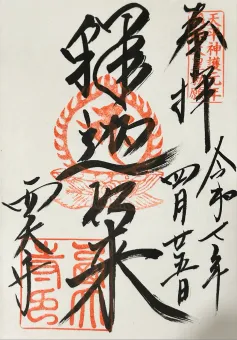 奉拝
令和七年
四月廿五日
釋迦如来
西大寺